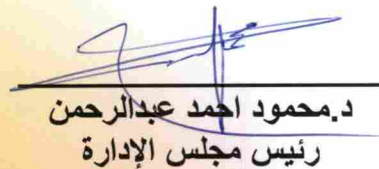 د.محمود احمد عبدالرحمن
رئيس مجلس الإدارة